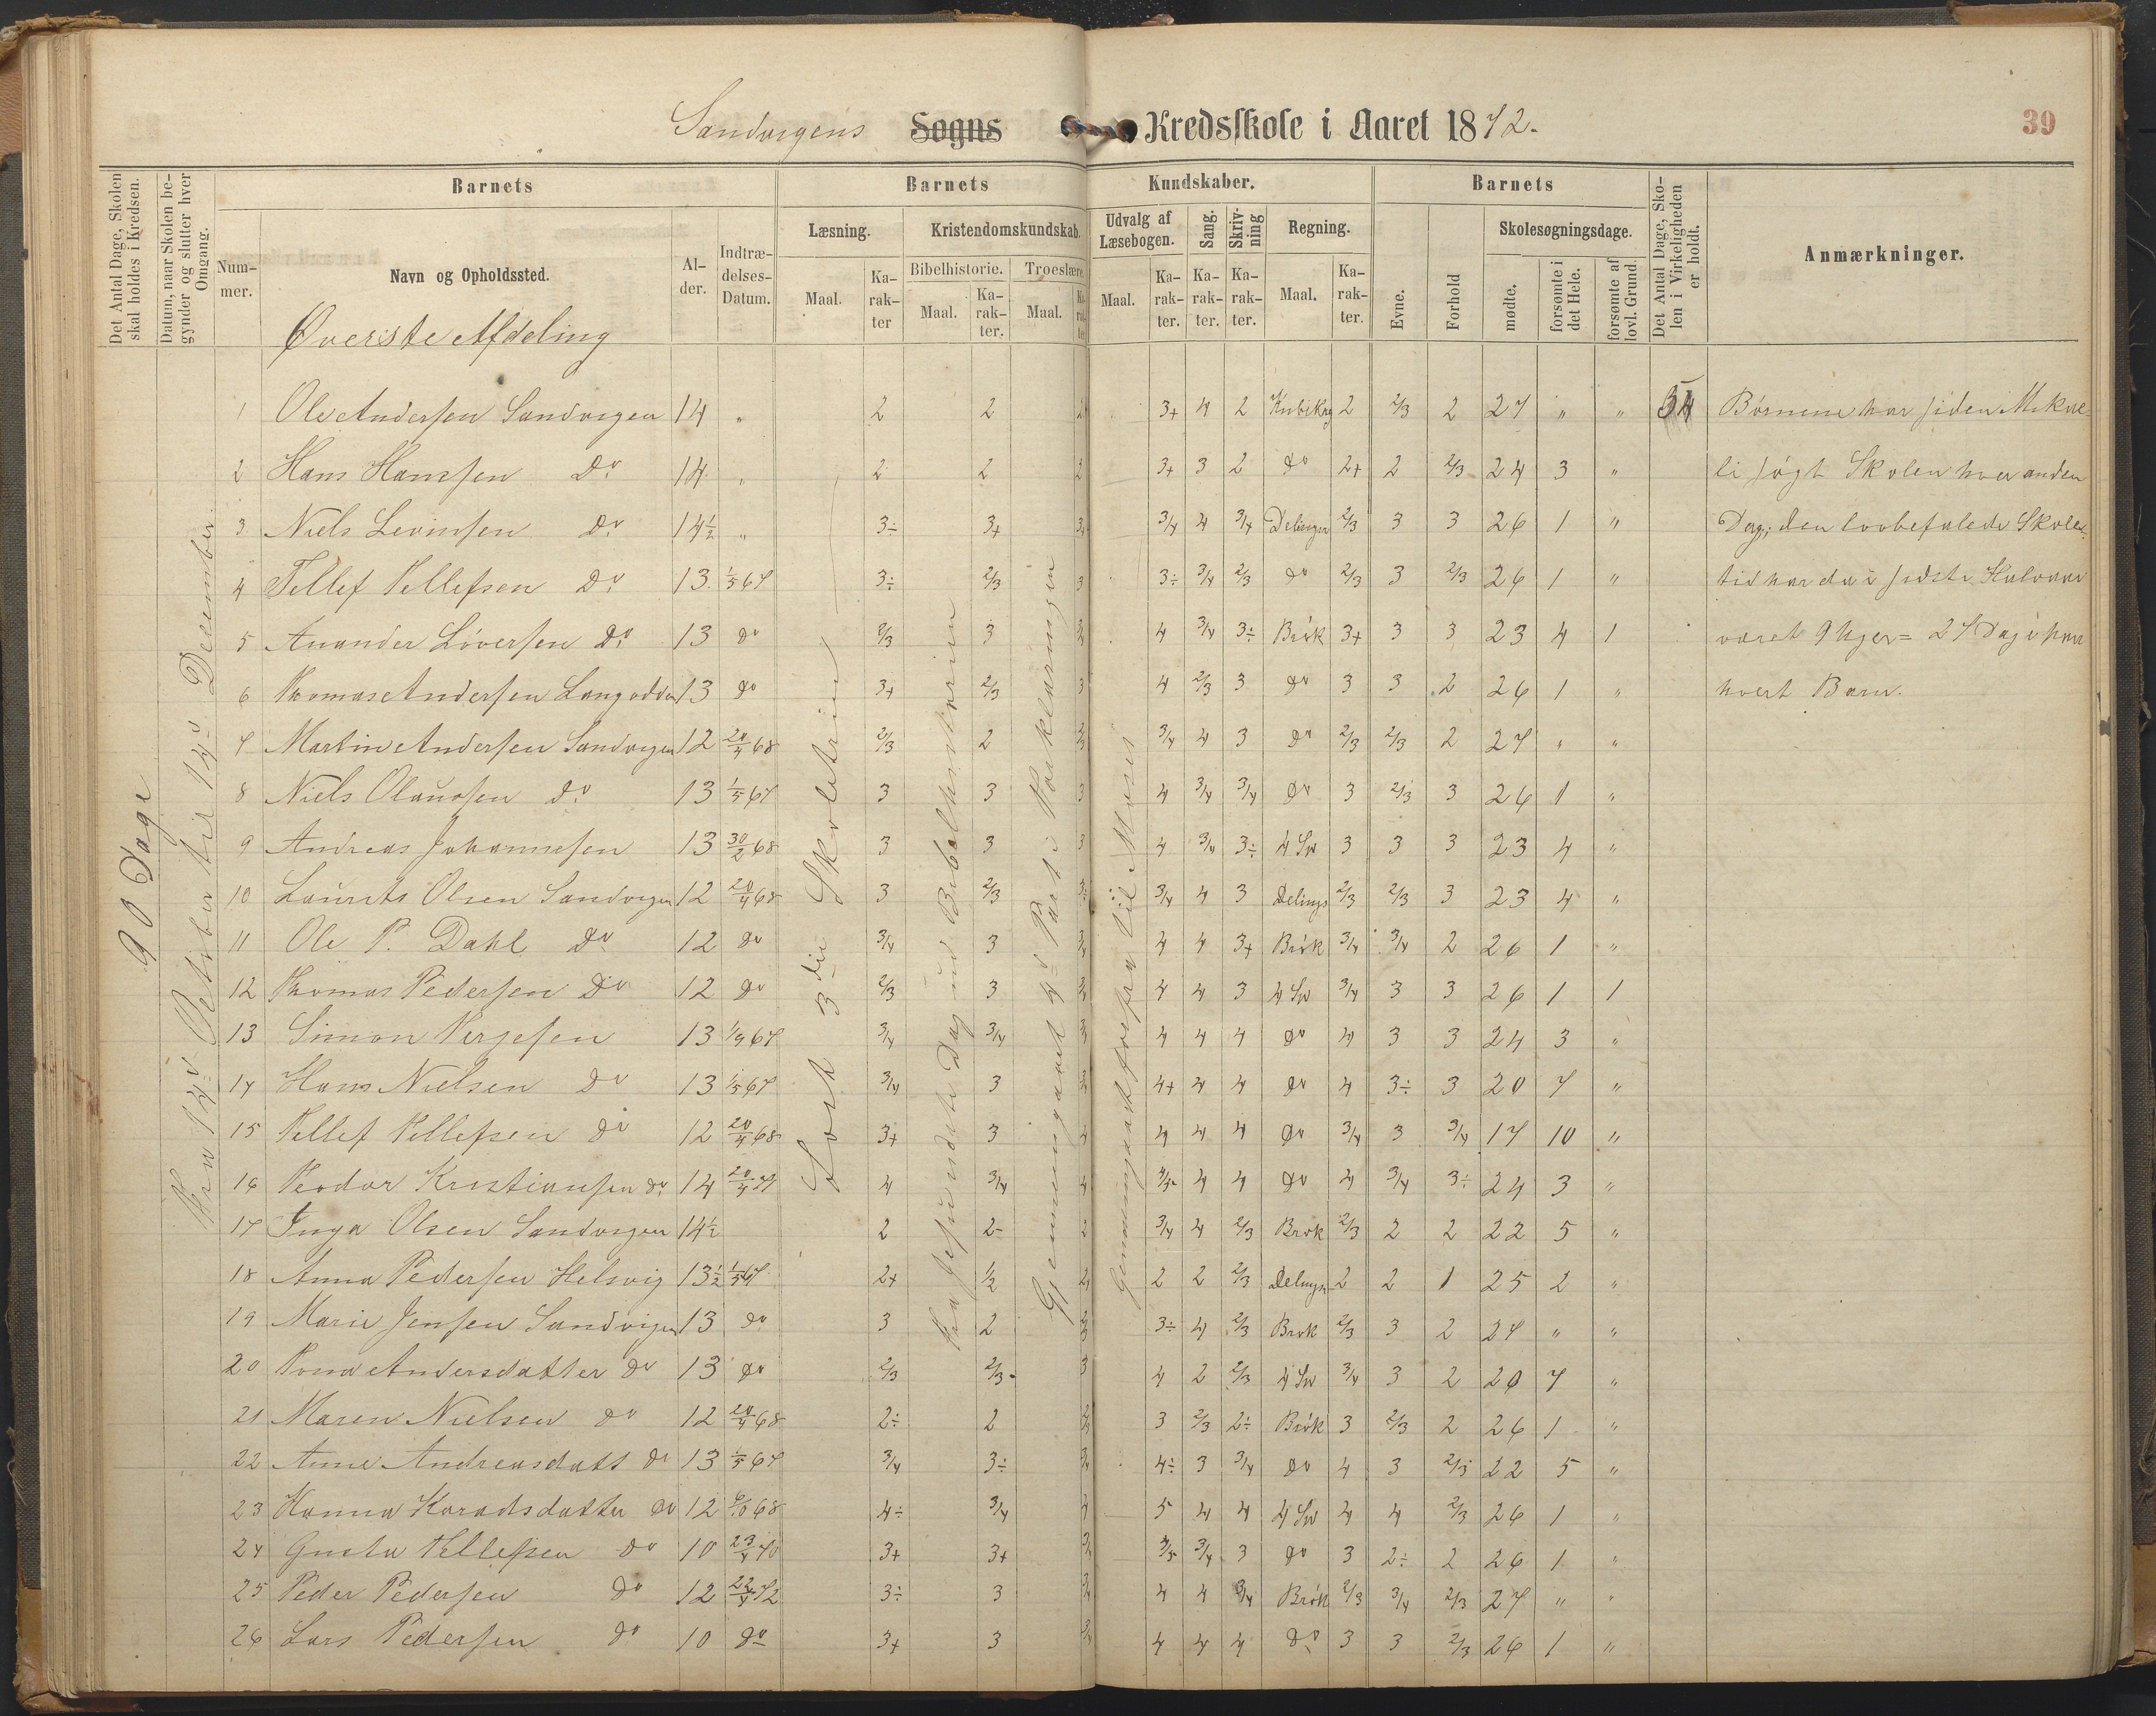 Sandvigens Sogns Kredsskole i Aaret 1872.
39
Det Antal Dage, Skolen skal holdes i Kredsen.
Datum, naar Skolen begynder og slutter hver Omgang.
Barnets
Barnets
Kundskaber.
Barnets
Det Antal Dage, Skolen i Virkeligheden er holdt.
Anmærkninger.
Nummer.
Navn og Opholdssted.
Alder.
Indtrædelses-Datum.
Læsning.
Kristendomskundskab.
Udvalg af Læsebogen.
Sang.
Skrivning
Regning.
Evne.
Forhold
Skolesøgningsdage.
Maal.
Karakter
Bibelhistorie.
Troeslære.
Maal.
Karakter.
Maal.
Karakter.
Maal.
Karakter.
Karakter.
Karakter.
Maal.
Karakter.
mødte.
forsømte i det Hele.
forsømte af lovl. Grund.
Øverste Afdeling
90 Dage
Fra 14d October til 14d December
Lært 3die Skoletrin
Fra Jesu sidste Dag ud Bibelhistorien
Gjennemgaaet 4d Part i Forklaringen
Gjennemgaaet fra til Moses
1 Ole Anderssen Sandvigen 14 " 2 2 2 3+ 4 2 Kubikrg 2 2/3 2 27 " " 54 Børnene har siden Mikae-
2 Hans Hanssen Do 14 " 2 2 2 3+ 3 2 Do 2+ 2 2/3 24 3 " li søgt Skolen hver anden
3 Niels Levinssen Do 14½ " 3÷ 3+ 3+ 3/4 4 3/4 Delinger 2/3 3 3 26 1 " Dag; den lovbefalede Skole-
4 Tellef Tellefsen Do 13 1/5 67 3÷ 2/3 3 3÷ 3/4 2/3 Do 2/3 3 2/3 26 1 " tid har da i sidste Halvaar
5 Anander Løversen Do 13 Do 2/3 3 3/4 4 3/4 3÷ Brøk 3+ 3 3 23 4 1 været 9 Uger = 27 Dag i paa
6 Thomas Anderssen Langodden 13 Do 3+ 2/3 3 4 2/3 3 Do 3 3 2 26 1 " hvert Barn.
7 Martin Anderssen Sandvigen 12 20/4 68 2/3 2 2/3 3/4 4 3 Do 2/3 2/3 2 27 " "
8 Niels Olaussen Do 13 1/5 67 3 3 3 4 3/4 3/4 Do 3 2/3 3 26 1 "
9 Andreas Johannesen 13 30/2 68 3 3 3 4 3/4 3÷ 4 Sp 3 3 3 23 4 "
10 Laurits Olsen Sandvigen 12 20/4 68 3 2/3 3÷ 3/4 4 3 Delings 2/3 2/3 3 23 4 "
11 Ole P. Dahl Do 12 Do 3/4 3 3/4 4 4 3+ Brøk 3/4 3/4 2 26 1 "
12 Thomas Pedersen Do 12 Do 2/3 3 3/4 4 4 3 4 Sp 3/4 3 3 26 1 1
13 Simon Tergesen 13 1/9 67 3/4 3/4 3/4 4 4 4 Do 4 3 3 24 3 "
14 Hans Nielsen Do 13 1/5 67 3/4 3 3/4 4+ 4 4 Do 4 3÷ 3 20 7 "
15 Tellef Tellefsen Do 12 20/4 68 3+ 3 4 4 4 4 Do 3/4 3 3/4 17 10 "
16 Teodor Kristiansen Do 14 20/4 71 4 3/4 4 4/5 4 4 Do 4 3/4 3÷ 24 3 "
17 Inga Olsen Sandvigen 14½ 2 2- 2 3/4 4 2/3 Brøk 2/3 2 2 22 5 "
18 Anna Pedersen Helsvig 13½ 1/5 67 2+ 1/2 2 2 2 2/3 Delings 2 2 1 25 2 "
19 Marie Jensen Sandvigen 13 Do 3 2 2/3 3÷ 4 2/3 Brøk 2/3 3 2 27 " "
20 Tona Andersdatter Do 13 Do 2/3 2/3- 3 4 2 2/3 4 Sp 3/4 3 2 20 7 "
21 Maren Nielsen Do 12 20/4 68 2÷ 2 2/3 3 2/3 2÷ Brøk 3 2/3 2 26 1 "
22 Anne Andreasdatt Do 13 1/5 67 3/4 3÷ 3/4 4÷ 3 3/4 Do 4 3 2/3 22 5 "
23 Hanna Koradsdatter Do 12 6/10 68 4÷ 3/4 4 5 4 4 4 Sp 4 4 2/3 26 1 "
24 Gusta Tellefsen Do 10 23/4 70 3+ 3+ 3/4 4/5 3/4 3 Do 3 2÷ 2 26 1 "
25 Peder Pedersen Do 12 22/4 72 3÷ 3 3/4 4 4 3/4 Brøk 2/3 3/4 2/3 27 " "
26 Lars Pedersen Do 10 Do 3+ 3 3/4 4 4 4 Do 3 3 2/3 26 1 "